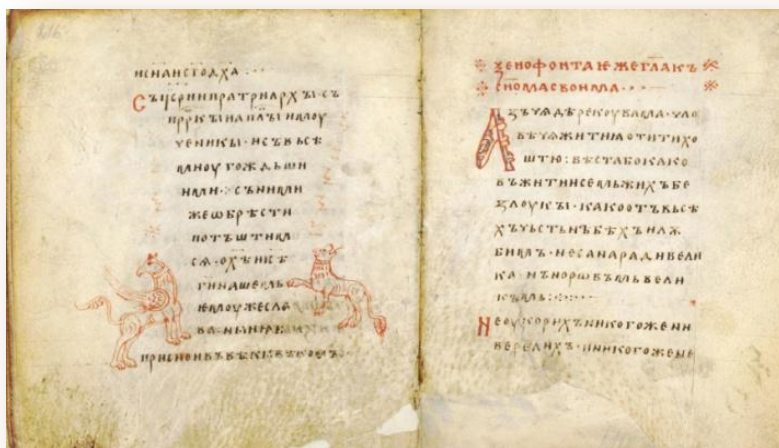 исн҃аист҃одх҃а
Съцс҃рипатриархꙑ·съ
пр҃ркꙑиап҃лꙑимоу
ченикꙑ·исъвьсѣ
миоугождьши
ими·:·съними
жеобрѣсти
потъштим
сѧ·ох҃ѣис҃ѣ
г҃инашемь
ѥмоужесла
ва·нꙑнꙗ
присноивъвѣкꙑвѣкомъ:
ꙁенофонтаѥжегл҃акъ
сн҃омасвоима
Аꙁъчѧдѣрекоувама·чло
вѣчѧжитиꙗотитихо
штю:вѣстабокако
въжитиисемьжихъбе
ꙁлоукꙑ·какоотъвьсѣ
хъчьстьнъбѣхъилю
бимъ·несанарадивели
ка·нънорѡвъмьвели
къмь:·:·
Неоукорихъникогожени
вередихъ·ниникогоже